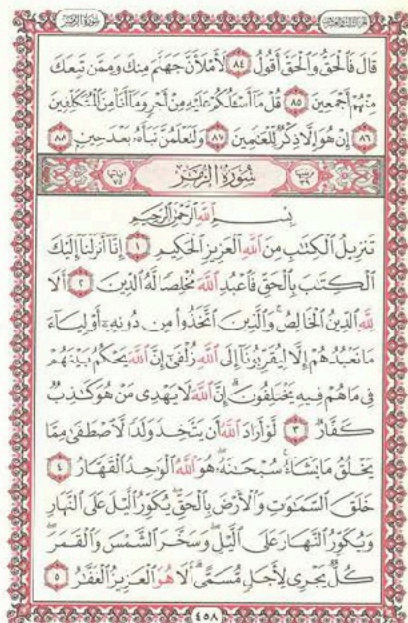 سورة الزمر
الجزء الثالث والعشرون
قَالَ فَالْحَقُّ وَالْحَقَّ أَقُولُ ٨٤ لَأَمْلَأَنَّ جَهَنَّمَ مِنكَ وَمِمَّن تَبِعَكَ
مِنْهُمْ أَجْمَعِينَ ٨٥ قُلْ مَا أَسْـَٔلُكُمْ عَلَيْهِ مِنْ أَجْرٍ وَمَا أَنَا مِنَ الْمُتَكَلِّفِينَ
٨٦ إِنْ هُوَ إِلَّا ذِكْرٌ لِّلْعَـٰلَمِينَ ٨٧ وَلَتَعْلَمُنَّ نَبَأَهُ بَعْدَ حِينٍ ٨٨
ترتيبها ٣٩ سُورَةُ الزُّمَرِ آياتها ٧٥
بِسْمِ اللَّهِ الرَّحْمَـٰنِ الرَّحِيمِ
تَنزِيلُ الْكِتَـٰبِ مِنَ اللَّهِ الْعَزِيزِ الْحَكِيمِ ١ إِنَّا أَنزَلْنَا إِلَيْكَ
الْكِتَـٰبَ بِالْحَقِّ فَاعْبُدِ اللَّهَ مُخْلِصًا لَّهُ الدِّينَ ٢ أَلَا
لِلَّهِ الدِّينُ الْخَالِصُ ۚ وَالَّذِينَ اتَّخَذُوا مِن دُونِهِ أَوْلِيَاءَ
مَا نَعْبُدُهُمْ إِلَّا لِيُقَرِّبُونَا إِلَى اللَّهِ زُلْفَىٰ إِنَّ اللَّهَ يَحْكُمُ بَيْنَهُمْ
فِي مَا هُمْ فِيهِ يَخْتَلِفُونَ ۗ إِنَّ اللَّهَ لَا يَهْدِي مَنْ هُوَ كَـٰذِبٌ
كَفَّارٌ ٣ لَّوْ أَرَادَ اللَّهُ أَن يَتَّخِذَ وَلَدًا لَّاصْطَفَىٰ مِمَّا
يَخْلُقُ مَا يَشَاءُ ۚ سُبْحَـٰنَهُ ۖ هُوَ اللَّهُ الْوَٰحِدُ الْقَهَّارُ ٤
خَلَقَ السَّمَـٰوَٰتِ وَالْأَرْضَ بِالْحَقِّ ۖ يُكَوِّرُ الَّيْلَ عَلَى النَّهَارِ
وَيُكَوِّرُ النَّهَارَ عَلَى الَّيْلِ ۖ وَسَخَّرَ الشَّمْسَ وَالْقَمَرَ ۖ
كُلٌّ يَجْرِي لِأَجَلٍ مُّسَمًّى ۗ أَلَا هُوَ الْعَزِيزُ الْغَفَّـٰرُ ٥
٤٥٨